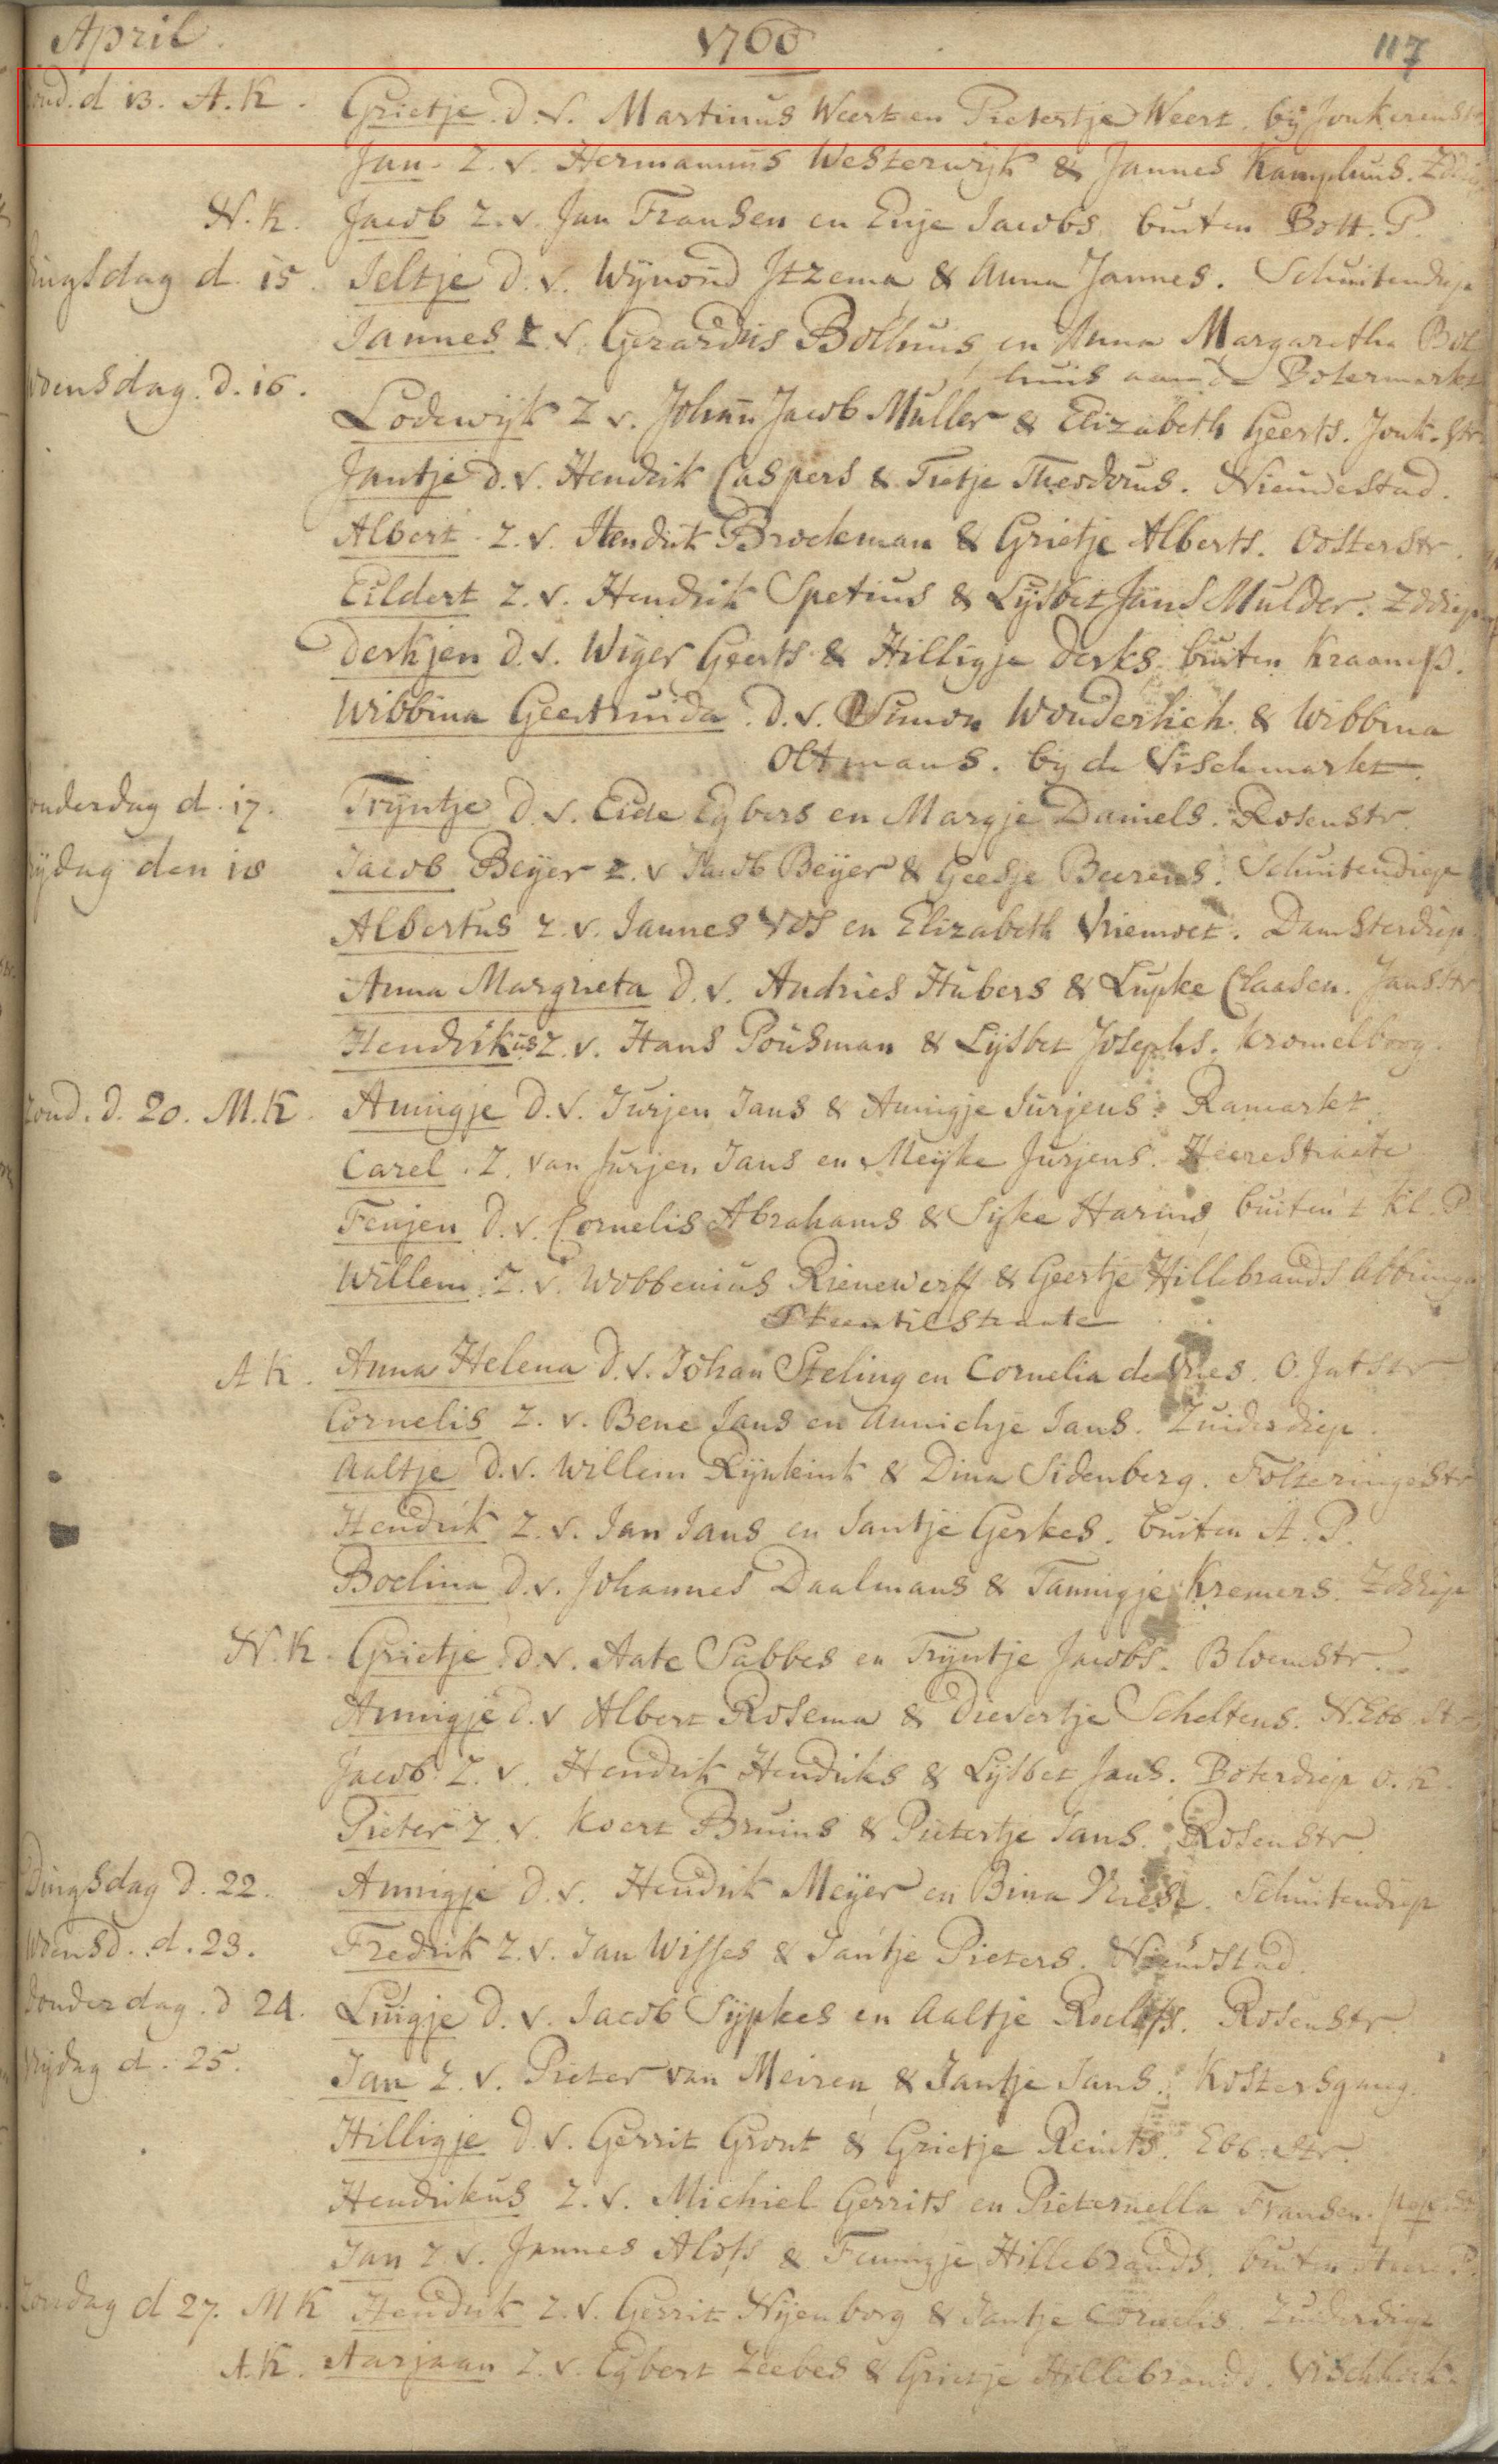 April. 1760 117
Zond. d 13. A. K. Grietje. D. v. Martinus Weert en Pietertje Weert. bij Jonkerenstr
Jan. Z. v. Hermannus Westerwijk & Jannes Kamphuis. Zddiep
N. K. Jacob Z. v. Jan Fransen en Enje Jacobs. buiten Bott. P.
Dingsdag d. 15. Jeltje D. v. Wijnond Itzema & Anna Jannes. Schuitendiep
Jannes Z. v. Gerardus Bolhuis en Anna Margaretha Bol
Woensdag. d. 16. huis aan de Botermarkt
Lodewijk Z v. Johan Jacob Muller & Elizabeth Geerts. Jonk. str.
Jantje D. v. Hendrik Caspers & Tietje Theodorus. Nieuwestad.
Albert Z. v. Hendrik Brockman & Grietje Alberts. Oosterstr.
Eildert Z. v. Hendrik Spetius & Lijsbet Jans Mulder. Zddiep
Derkjen D. v. Wiger Geerts & Hilligje Derks. buiten Kraanep.
Wibbina Geertruida. D. v. Simon Wonderlich & Wibbina
Oltmans. bij de Vischmarkt.
Donderdag d. 17. Trijntje D. v. Eide Egbers en Margje Daniels. Rosenstr.
Vrijdag den 18 Jacob Beijer Z. v Jacob Beijer & Geesje Beerens. Schuitendiep
Albertus Z. v. Jannes Vos en Elizabeth Vriemoet. Damsterdiep.
Anna Margrieta D. v. Andries Hubers & Lupke Claasen. Jansstr.
Hendrikus Z. v. Hans Pousman & Lijsbet Josephs. Kromelboog.
Zond. d. 20. M. K. Annigje D. v. Jurjen Jans & Annigje Jurjens. Ramarkt.
Carel. Z. van Jurjen Jans en Meijke Jurjens. Heerestraate
Fenjen D. v. Cornelis Abrahams & Sijke Harms, buiten 't Kl. P.
Willem. Z. v. Wobbenius Rienewerff & Geertje Hillebrands Abbringa
straate
A K. Anna Helena D. v. Johan Steling en Cornelia de Vries. O. Jatstr
Cornelis Z. v. Bene Jans en Annichje Jans. Zuiderdiep.
Aaltje D. v. Willem Rijnkink & Dina Sidenberg. Folteringestr
Hendrik Z. v. Jan Jans en Jantje Gerkes. buiten A. P.
Boelina D. v. Johannes Daalmans & Tannigje Kremers. Zddiep
N. K. Grietje. D. v. Aate Sabbes en Trijntje Jacobs. Bloemstr.
Annigje D. v Albert Rosema & Dievertje Scheltens. N. Ebb. Str
Jacob. Z. v. Hendrik Hendriks & Lijsbet Jans. Boterdiep O. K.
Pieter Z. v. Koert Bruins & Pietertje Jans. Rosenstr.
Dingsdag D. 22. Annigje D. v. Hendrik Meijer en Bina Vriese. Schuitendiep
Woensd. d. 23. Fredrik Z. v. Jan Wisses & Jantje Pieters. Nieuwstad.
Donderdag. d 24. Luigje D. v. Jacob Sijpkes en Aaltje Roelfs. Rosenstr.
Vrijdag d. 25. Jan Z. v. Pieter van Meiren & Jantje Jans. Kostersgang.
Hilligje D. v. Gerrit Gront & Grietje Reints. Ebb. str.
Hendrikus Z. v. Michiel Gerrits en Pieternella Fransen.
Jan Z. v. Jannes Alofs & Fennigje Hillebrands. buiten P.
Zondag d 27. M K Hendrik Z. v. Gerrit Nijenborg & Jantje Cornelis. Zuiderdiep
A. K. Aarjaan Z. v. Egbert Zeebes & Grietje Hillebrands.